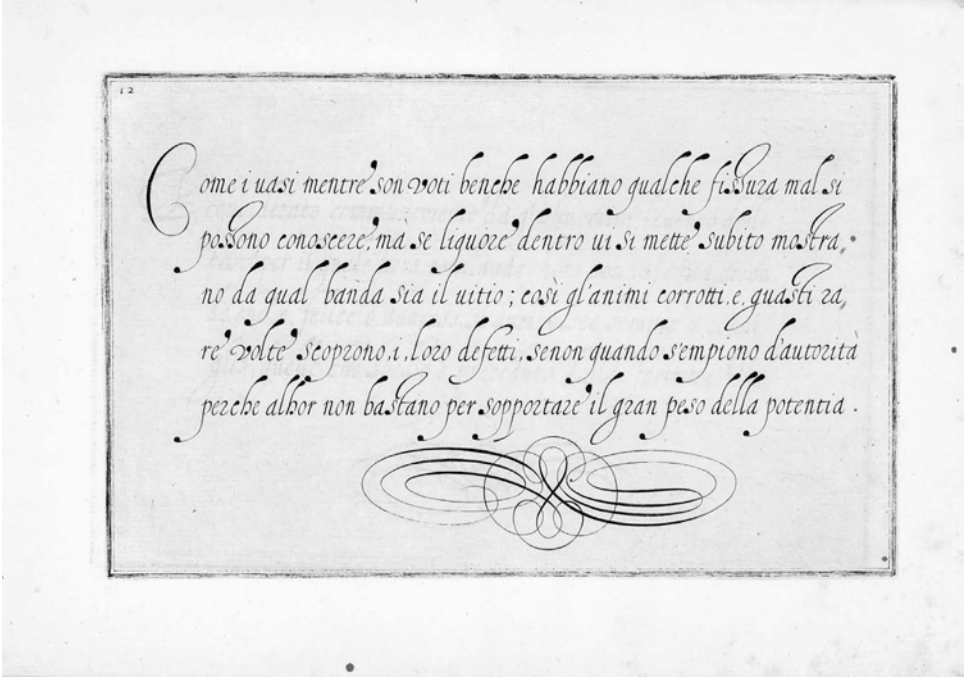 12
Come i uasi mentre son voti benche habbiano qualche fissura mal si
possono conoscere, ma se liquore dentro ui si mette subito mostra,
no da qual banda sia il uitio; cosi gl'animi corrotti, e, guasti ra,
re volte scoprono, i, loro defetti, senon quando s'empiono d'autorità
perche alhor non bastano per sopportare il gran peso della potentia.